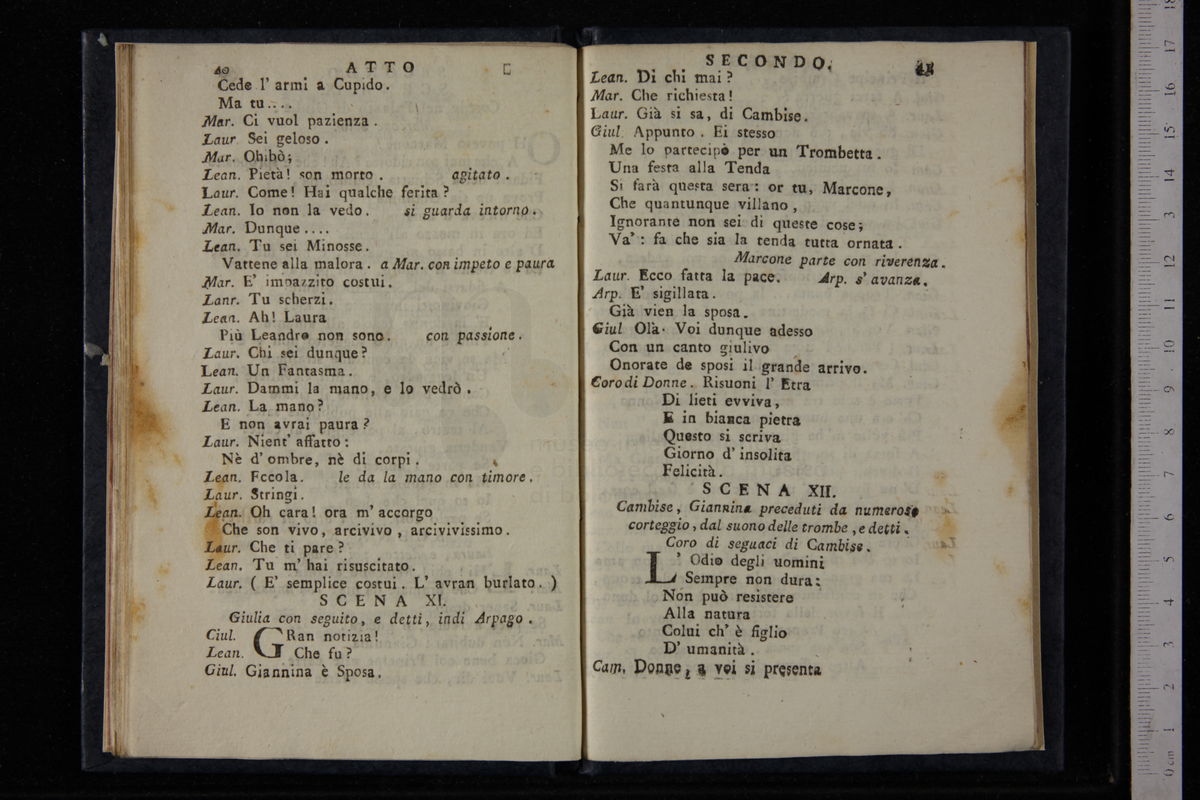 40 ATTO
Cede l' armi a Cupido.
Ma tu....
Mar. Ci vuol pazienza.
Laur Sei geloso.
Mar. Ohibò;
Lean. Pietà! son morto. agitato.
Laur. Come! Hai qualche ferita?
Lean. Io non la vedo. si guarda intorno.
Mar. Dunque....
Lean. Tu sei Minosse.
Vattene alla malora. a Mar. con impeto e paura
Mar. E' impazzito costui.
Lanr. Tu scherzi.
Lean. Ah! Laura
Più Leandro non sono. con passione.
Laur. Chi sei dunque?
Lean. Un Fantasma.
Laur. Dammi la mano, e lo vedrò.
Lean. La mano?
E non avrai paura?
Laur. Nient' affatto:
Nè d' ombre, nè di corpi.
Lean. Eccola. le da la mano con timore.
Laur. Stringi.
Lean. Oh cara! ora m' accorgo
Che son vivo, arcivivo, arcivivissimo.
Laur. Che ti pare?
Lean. Tu m' hai risuscitato.
Laur. ( E' semplice costui. L' avran burlato. )
SCENA XI.
Giulia con seguito, e detti, indi Arpago.
Ciul. GRan notizia!
Lean. Che fu?
Giul. Giannina è Sposa.
SECONDO. 41
Lean. Di chi mai?
Mar. Che richiesta!
Laur. Già si sa, di Cambise.
Giul Appunto. Ei stesso
Me lo partecipò per un Trombetta.
Una festa alla Tenda
Si farà questa sera: or tu, Marcone,
Che quantunque villano,
Ignorante non sei di queste cose;
Va': fa che sia la tenda tutta ornata.
Marcone parte con riverenza.
Laur. Ecco fatta la pace. Arp. s' avanza.
Arp. E' sigillata.
Già vien la sposa.
Giul Olà. Voi dunque adesso
Con un canto giulivo
Onorate de sposi il grande arrivo.
Coro di Donne. Risuoni l' Etra
Di lieti evviva,
E in bianca pietra
Questo si scriva
Giorno d' insolita
Felicità.
SCENA XII.
Cambise, Giannina preceduti da numeroso
corteggio, dal suono delle trombe, e detti.
Coro di seguaci di Cambise.
L' Odio degli uomini
Sempre non dura;
Non può resistere
Alla natura
Colui ch' è figlio
D' umanità.
Cam. Donne, a voi si presenta